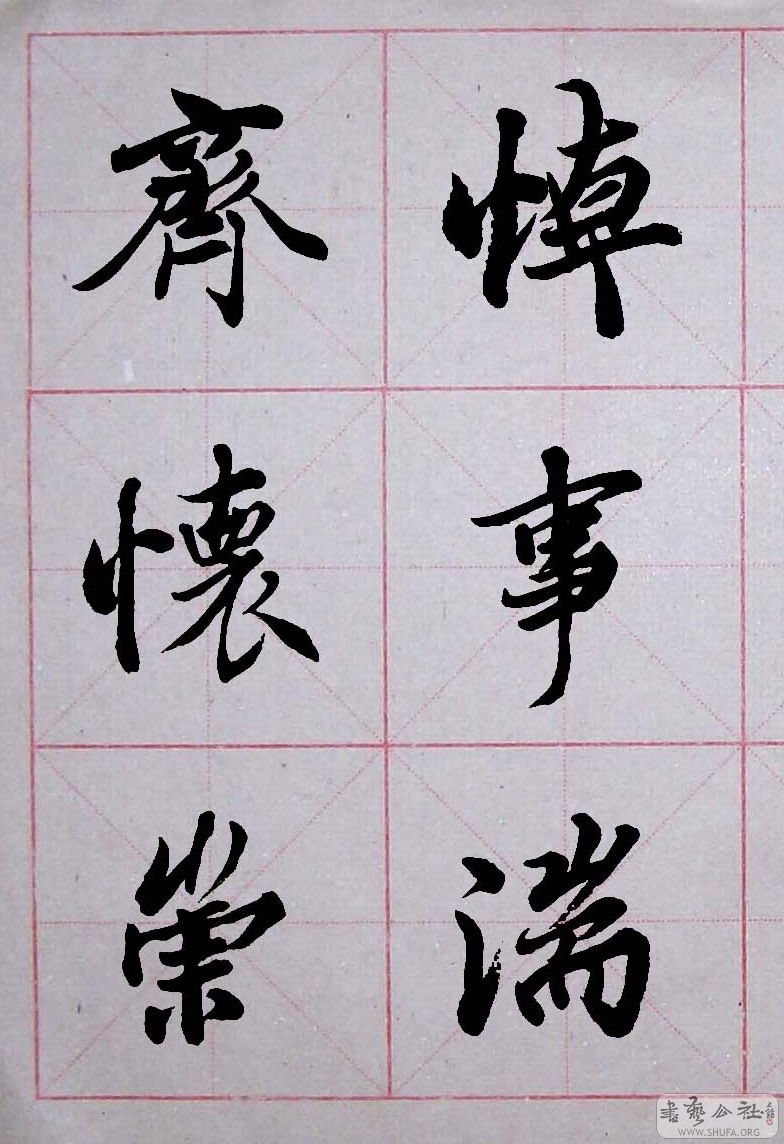 悼事湍
齊懷崇
書藝公社
WWW.SHUFA.ORG